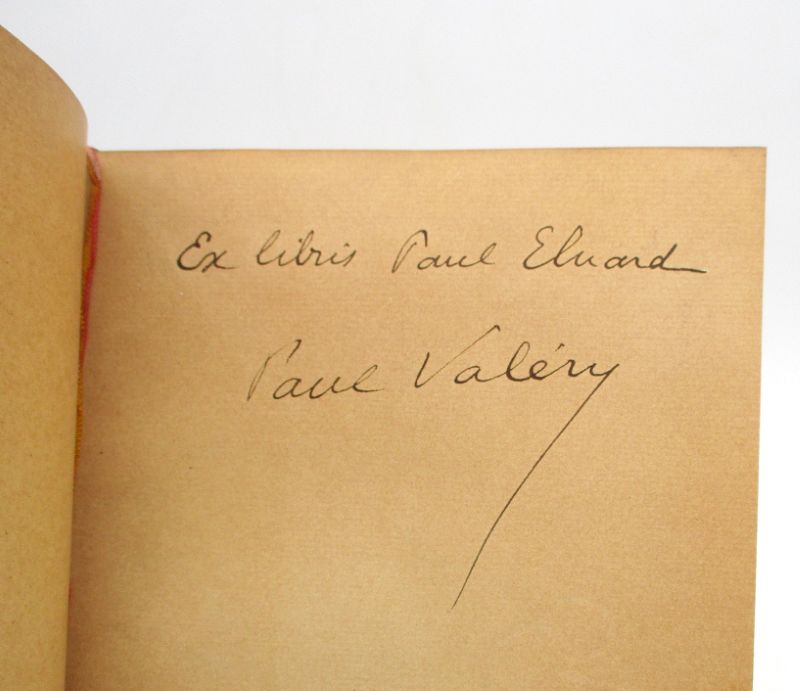 Ex libris Paul Eluard
Paul Valéry